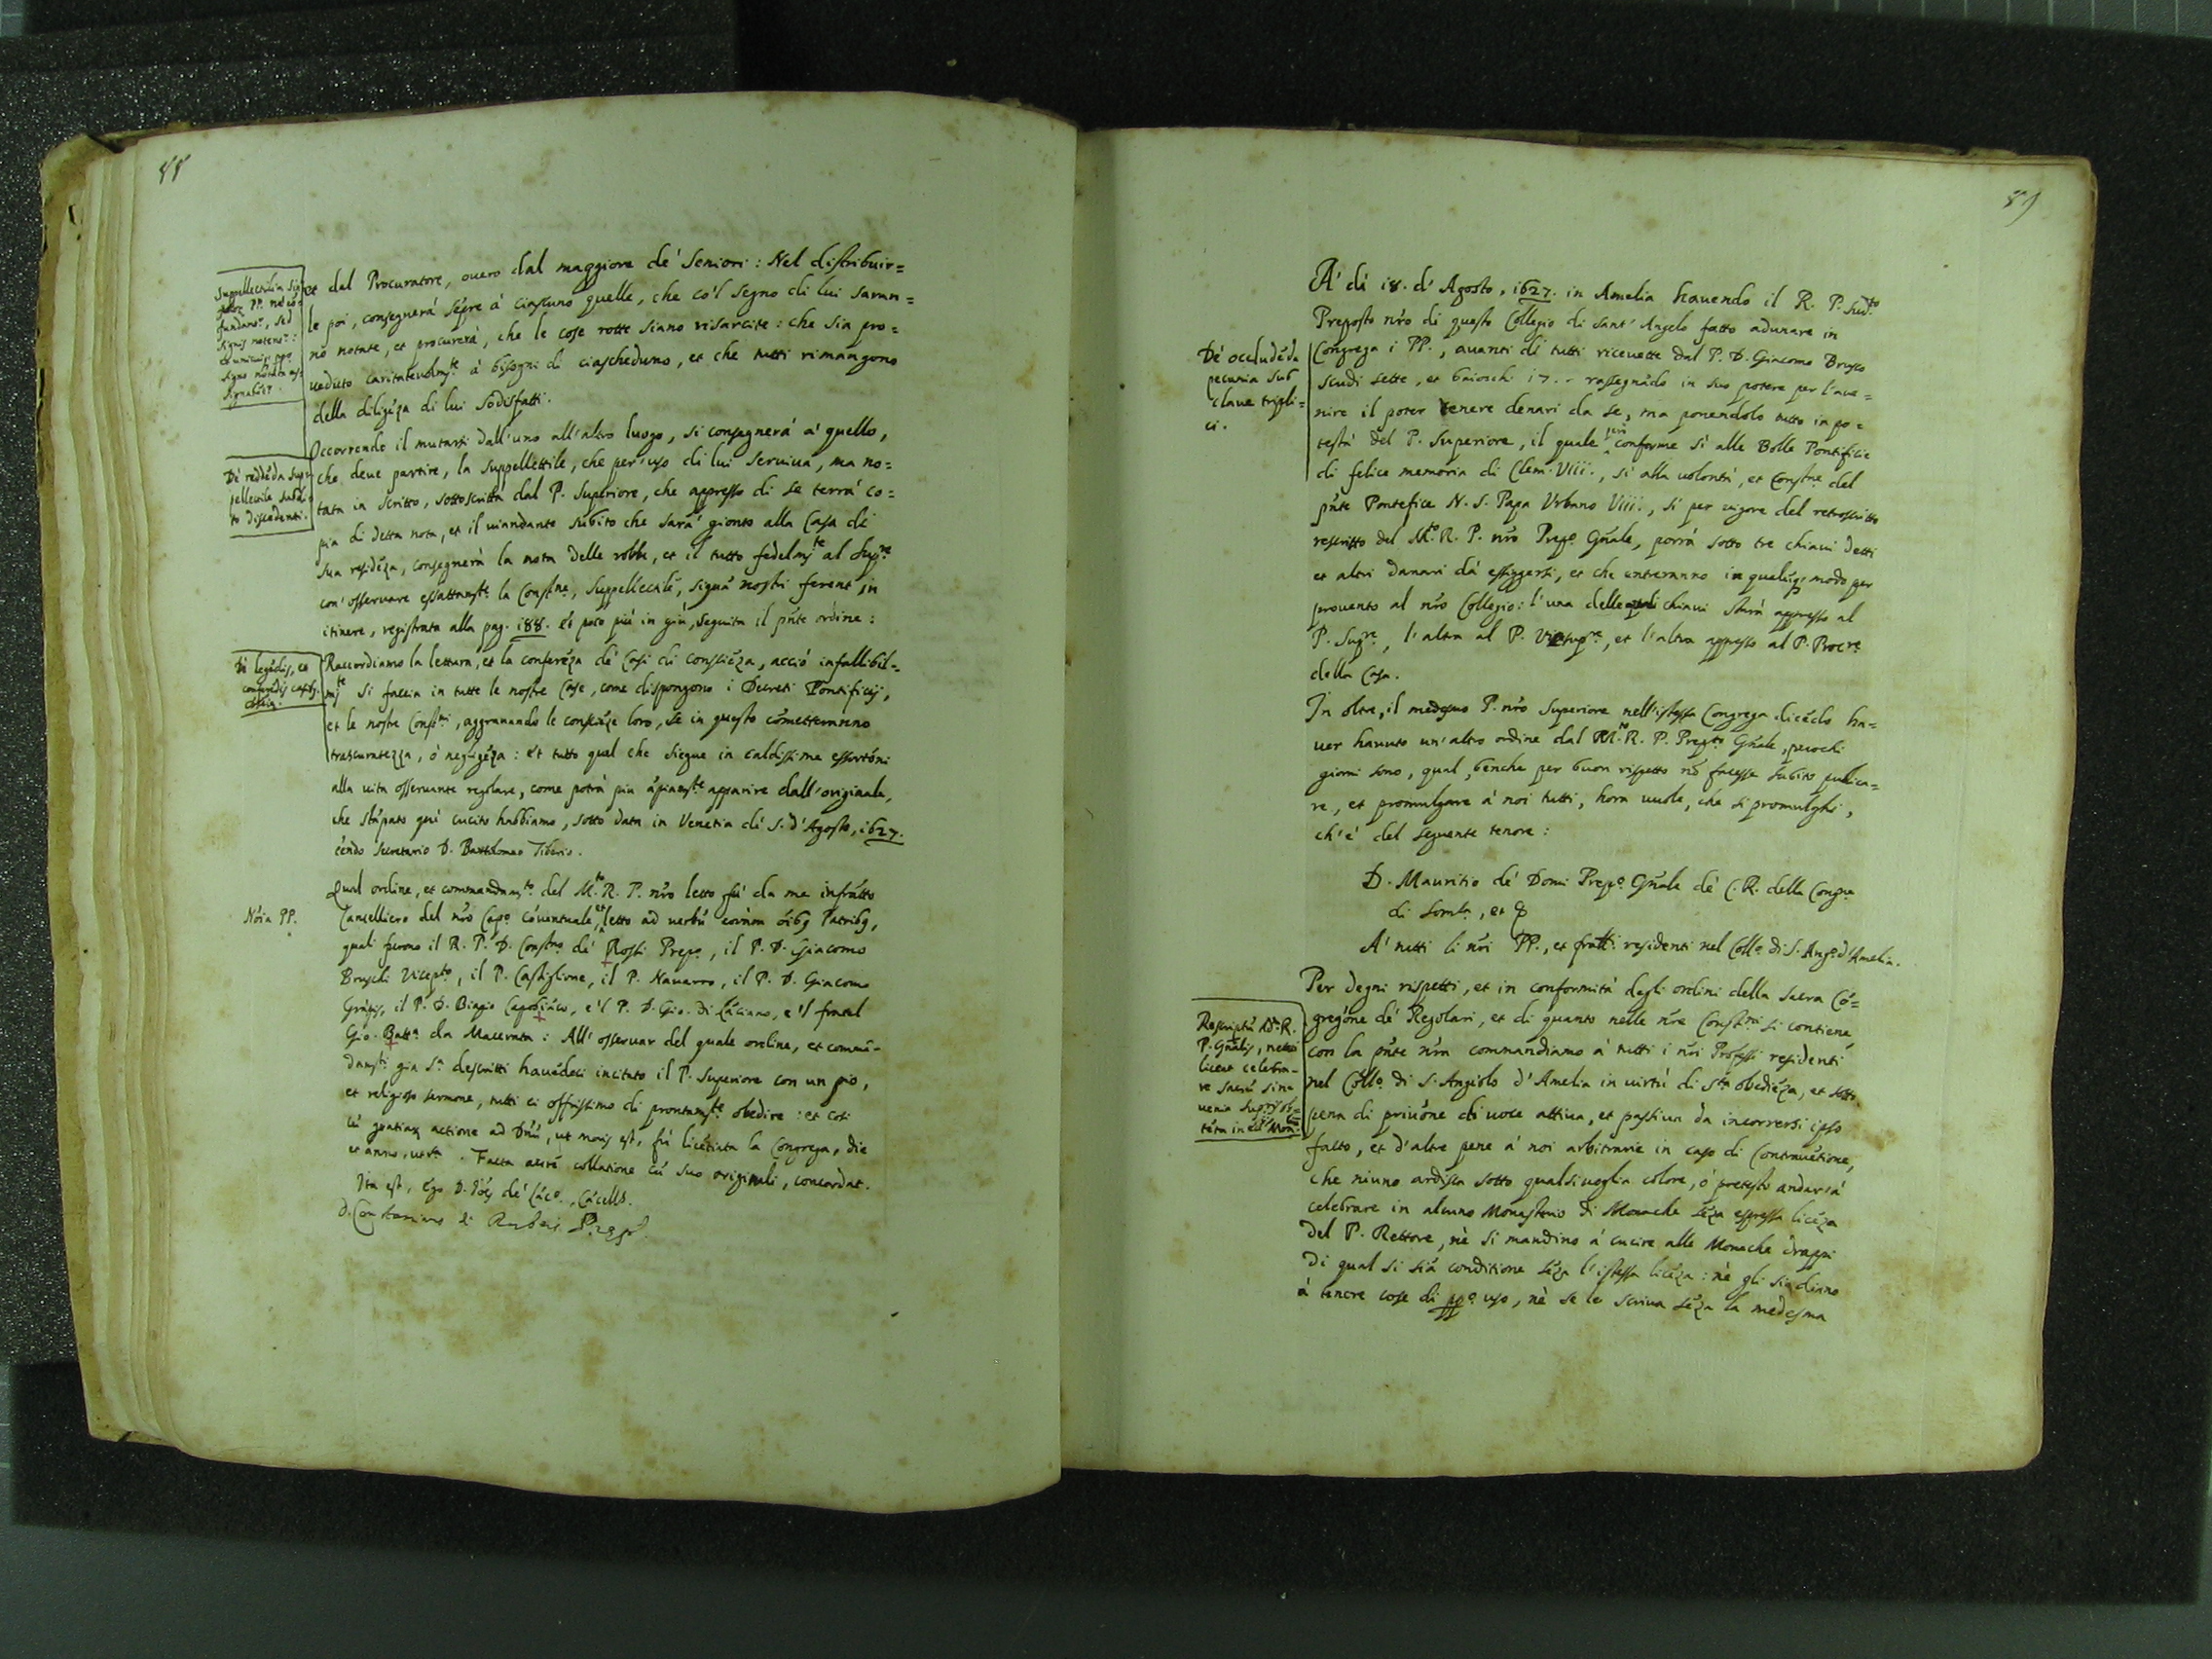 88
Suppellectilia sin
et dal Procuratore, ouero dal maggiore de' Seniori: Nel distribuir=
le poi, consegnerà sẽpre à ciascuno quelle, che co'l segno di lui saran=
nõ notate, et procurerà, che le cose rotte siano risarcite: che sia pro=
ueduto caritateuolmte à bisogni di ciascheduno, et che tutti rimangono
della diligẽza di lui sodisfatti.
Dè reddẽda sup=
pellectile
to discedenti.
Occorrendo il mutarsi dall'uno all'altro luogo, si consegnerà à quello,
che deue partire, la suppellettile, che per uso di lui seruiua, ma no=
tata in scritto, sottoscritta dal P. Superiore, che appresso di se terrà co=
pia di detta nota, et il uiandante subito che sarà gionto alla Casa di
sua residẽza, consegnerà la nota delle robbe, et il tutto fedelmte al Supre
con' osseruare essattamte la Constne, Suppellectilẽ, siquã nostri ferent in
itinere, registrata alla pag. 188. Et poco più in giù, seguita il pñte ordine:
Di legẽdis, et
Raccordiamo la lettura, et la conferẽza de' Casi di consciẽza, acciò infallibil=
mte si faccia in tutte le nostre Case, come dispongono i Decreti Pontificij,
et le nostre Constni, aggrauando le consciẽze loro, se in questo cõmetteranno
trascuratezza, ò negligẽza: Et tutto quel che siegue in caldissime essortõni
alla uita osseruante regolare, come potrà piu ãpiamte apparire dall'originale,
che stãpato quì cucito habbiamo, sotto data in Venetia di 5. d'Agosto, 1627.
Secretario D. Bartolomeo Tiberio.
Nõia PP.
Qual ordine, et commandamto del M.to R. P. nro letto fù da me infratto
Cancelliero del nro Capo cõuentuale, et letto ad uerbũ corãm õibg Patribg,
quali furono il R. P. D. Constno de' Rossi Prepo, il P. D. Giacomo
Bruschi Vicepto, il P. Castiglione, il P. Nauarro, il P. D. Giacomo
il P. D. Biagio Capobiãco, e'l P. D. Gio. di Lãciano, e'l fratel
Gio. Batta da Macerata: All'osseruar del quale ordine, et commã=
damti gia sa descritti hauẽdoci incitato il P. Superiore con un pio,
et religioso sermone, tutti ci offrissimo di prontamte obedire: et cosi
cũ gratiar actione ad Dñũ, ut moris est, fù licẽtiata la Congrega, die
et anno, ut sa. Facta collatione cũ suo originali, concordat.
Ita est, Ego D. Joẽs de' Lãco, Cãcells.
D. Constantinus de Rubeis Prepo.
89
A' di 18. d'Agosto, 1627. in Amelia hauendo il R. P. Sudto
Preposto nro di questo Collegio di sant' Angelo fatto adunare in
Dè occludẽda
pecunia sub
claue tripli=
ci.
Congrega i PP., auanti di tutti riceuette dal P. D. Giacomo Brusco
scudi sette, et baiocchi 17. - rassegnãdo in suo potere per l'aue=
nire il poter tenere denari da se, ma ponendolo tutto in po=
testà del P. Superiore, il quale conforme si alle Bolle Pontificie
di felice memoria di Clem. Viii., si alla uolontà, et Constne del
pñte Pontefice N. S. Papa Vrbano Viii., si per uigore del retroscritto
rescritto del M.to R. P. nro Prepo Gñale, porrà sotto tre chiaui detti
et altri danari dà essiggersi, et che entreranno in qualũqs modo per
prouento al nro Collegio: l'una delle quali chiaui starà appresso al
P. Supre, l'altra al P. Vicesupre, et l'altra appresso al P. Procre
della Casa.
In oltre, il medesmo P. nro Superiore nell'istessa Congrega dicẽdo ha=
uer hauuto un'altro ordine dal M.to R. P. Prepto Gñale, puochi
giorni sono, qual, benche per buon rispetto nõ facesse subito publica=
re, et promulgare à noi tutti, hora uuole, che si promulghi,
ch'è del seguente tenore:
D. Mauritio de' Domi Prepo Gñale de' C. R. della Congne
di Somca, et c
A' tutti li nri PP., et fratti residenti nel Collo di S. Ango d'Amelia.
Rescriptũ Adm R.
P. Gñalis, nemini
liceat celebra=
re sacrũ sine
uenia
Per degni rispetti, et in conformità degli ordini della Sacra Cõ=
gregõne de' Regolari, et di quanto nelle nre Constni si contiene,
con la pñte nra commandiamo à tutti i nri Professi residenti
nel Collo di S. Angiolo d'Amelia in uirtù di sta obediẽza, et sotto
pena di priuõne di uoce attiua, et passiua da incorrersi ipso
facto, et d'altre pene à noi arbitrarie in caso di Contrauẽtione,
che niuno ardisca sotto qualsiuoglia colore, ò pretesto andar'à
celebrare in alcuno Monasterio di Monache sẽza espressa licẽza
del P. Rettore, nè si mandino à cucire alle Monache drappi
di qual si sia conditione sẽza l'istessa licẽza: nè gli si diano
à tenere cose di ppo uso, nè se le scriua sẽza la medesma